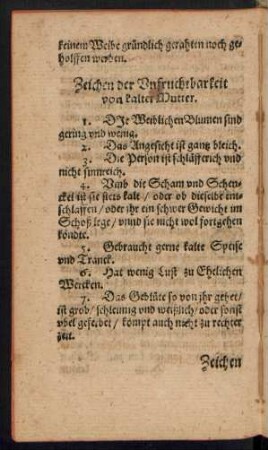 keinem Weibe gründlich gerahten noch ge-
holffen werden.
Zeichen der Vnfruchtbarkeit
von kalter Mutter.
1. DJe Weiblichen Blumen sind
gering vnd wenig.
2. Das Angesicht ist gantz bleich.
3. Die Person ist schläfferich vnd
nicht sinnreich.
4. Vmb die Scham vnd Schen-
ckel ist sie stets kalt / oder ob dieselbe ent-
schlaffen / oder ihr ein schwer Gewicht im
Schoß lege / vnnd sie nicht wol fortgehen
köndte.
5. Gebraucht gerne kalte Speise
vnd Tranck.
6. Hat wenig Lust zu Ehelichen
Wercken.
7. Das Geblüte so von jhr gehet /
ist grob / schleimig vnd weißlich / oder sonst
vbel geferbet / kömpt auch nicht zu rechter
zeit.
Zeichen